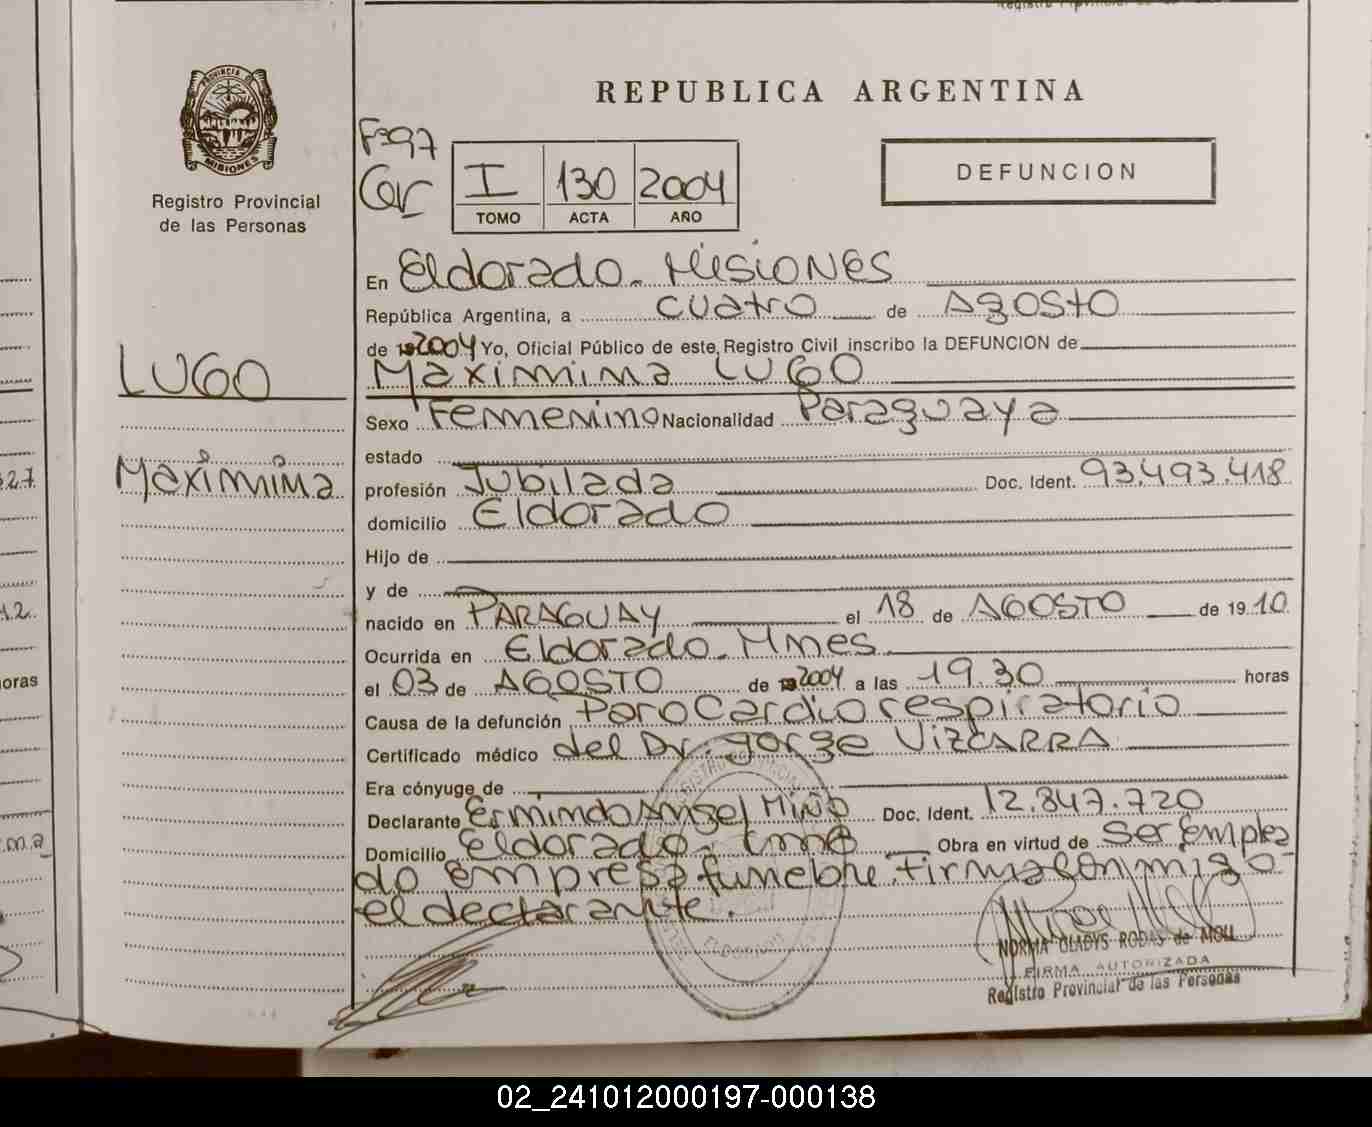 REPUBLICA ARGENTINA
PROVINCIA DE
MISIONES
Registro Provincial
de las Personas
F397
I 130 2004
TOMO ACTA AÑO
DEFUNCION
En Eldorado. Misiones
República Argentina, a cuatro de Agosto
de 2004 Yo, Oficial Público de este Registro Civil inscribo la DEFUNCION de
Maximima LUGO
LUGO
Maximima
Sexo Femenino Nacionalidad Paraguaya
estado
profesión Jubilada Doc. Ident. 93.493.418
domicilio Eldorado
Hijo de
y de
nacido en PARAGUAY el 18 de AGOSTO de 1910
Ocurrida en Eldorado. Mnes
el 03 de AGOSTO de 2004 a las 19.30 horas
Causa de la defunción Paro Cardio respiratorio
Certificado médico del Dr. Jorge VIZCARRA
Era cónyuge de
Declarante Ermindo Angel Miño Doc. Ident. 12.847.720
Domicilio Eldorado. Obra en virtud de ser emplea
do empresa fúnebre. Firma con migo
el declarante.
NORMA GLADYS RODAS de MOLL
FIRMA AUTORIZADA
Registro Provincial de las Personas
oras
02_241012000197-000138